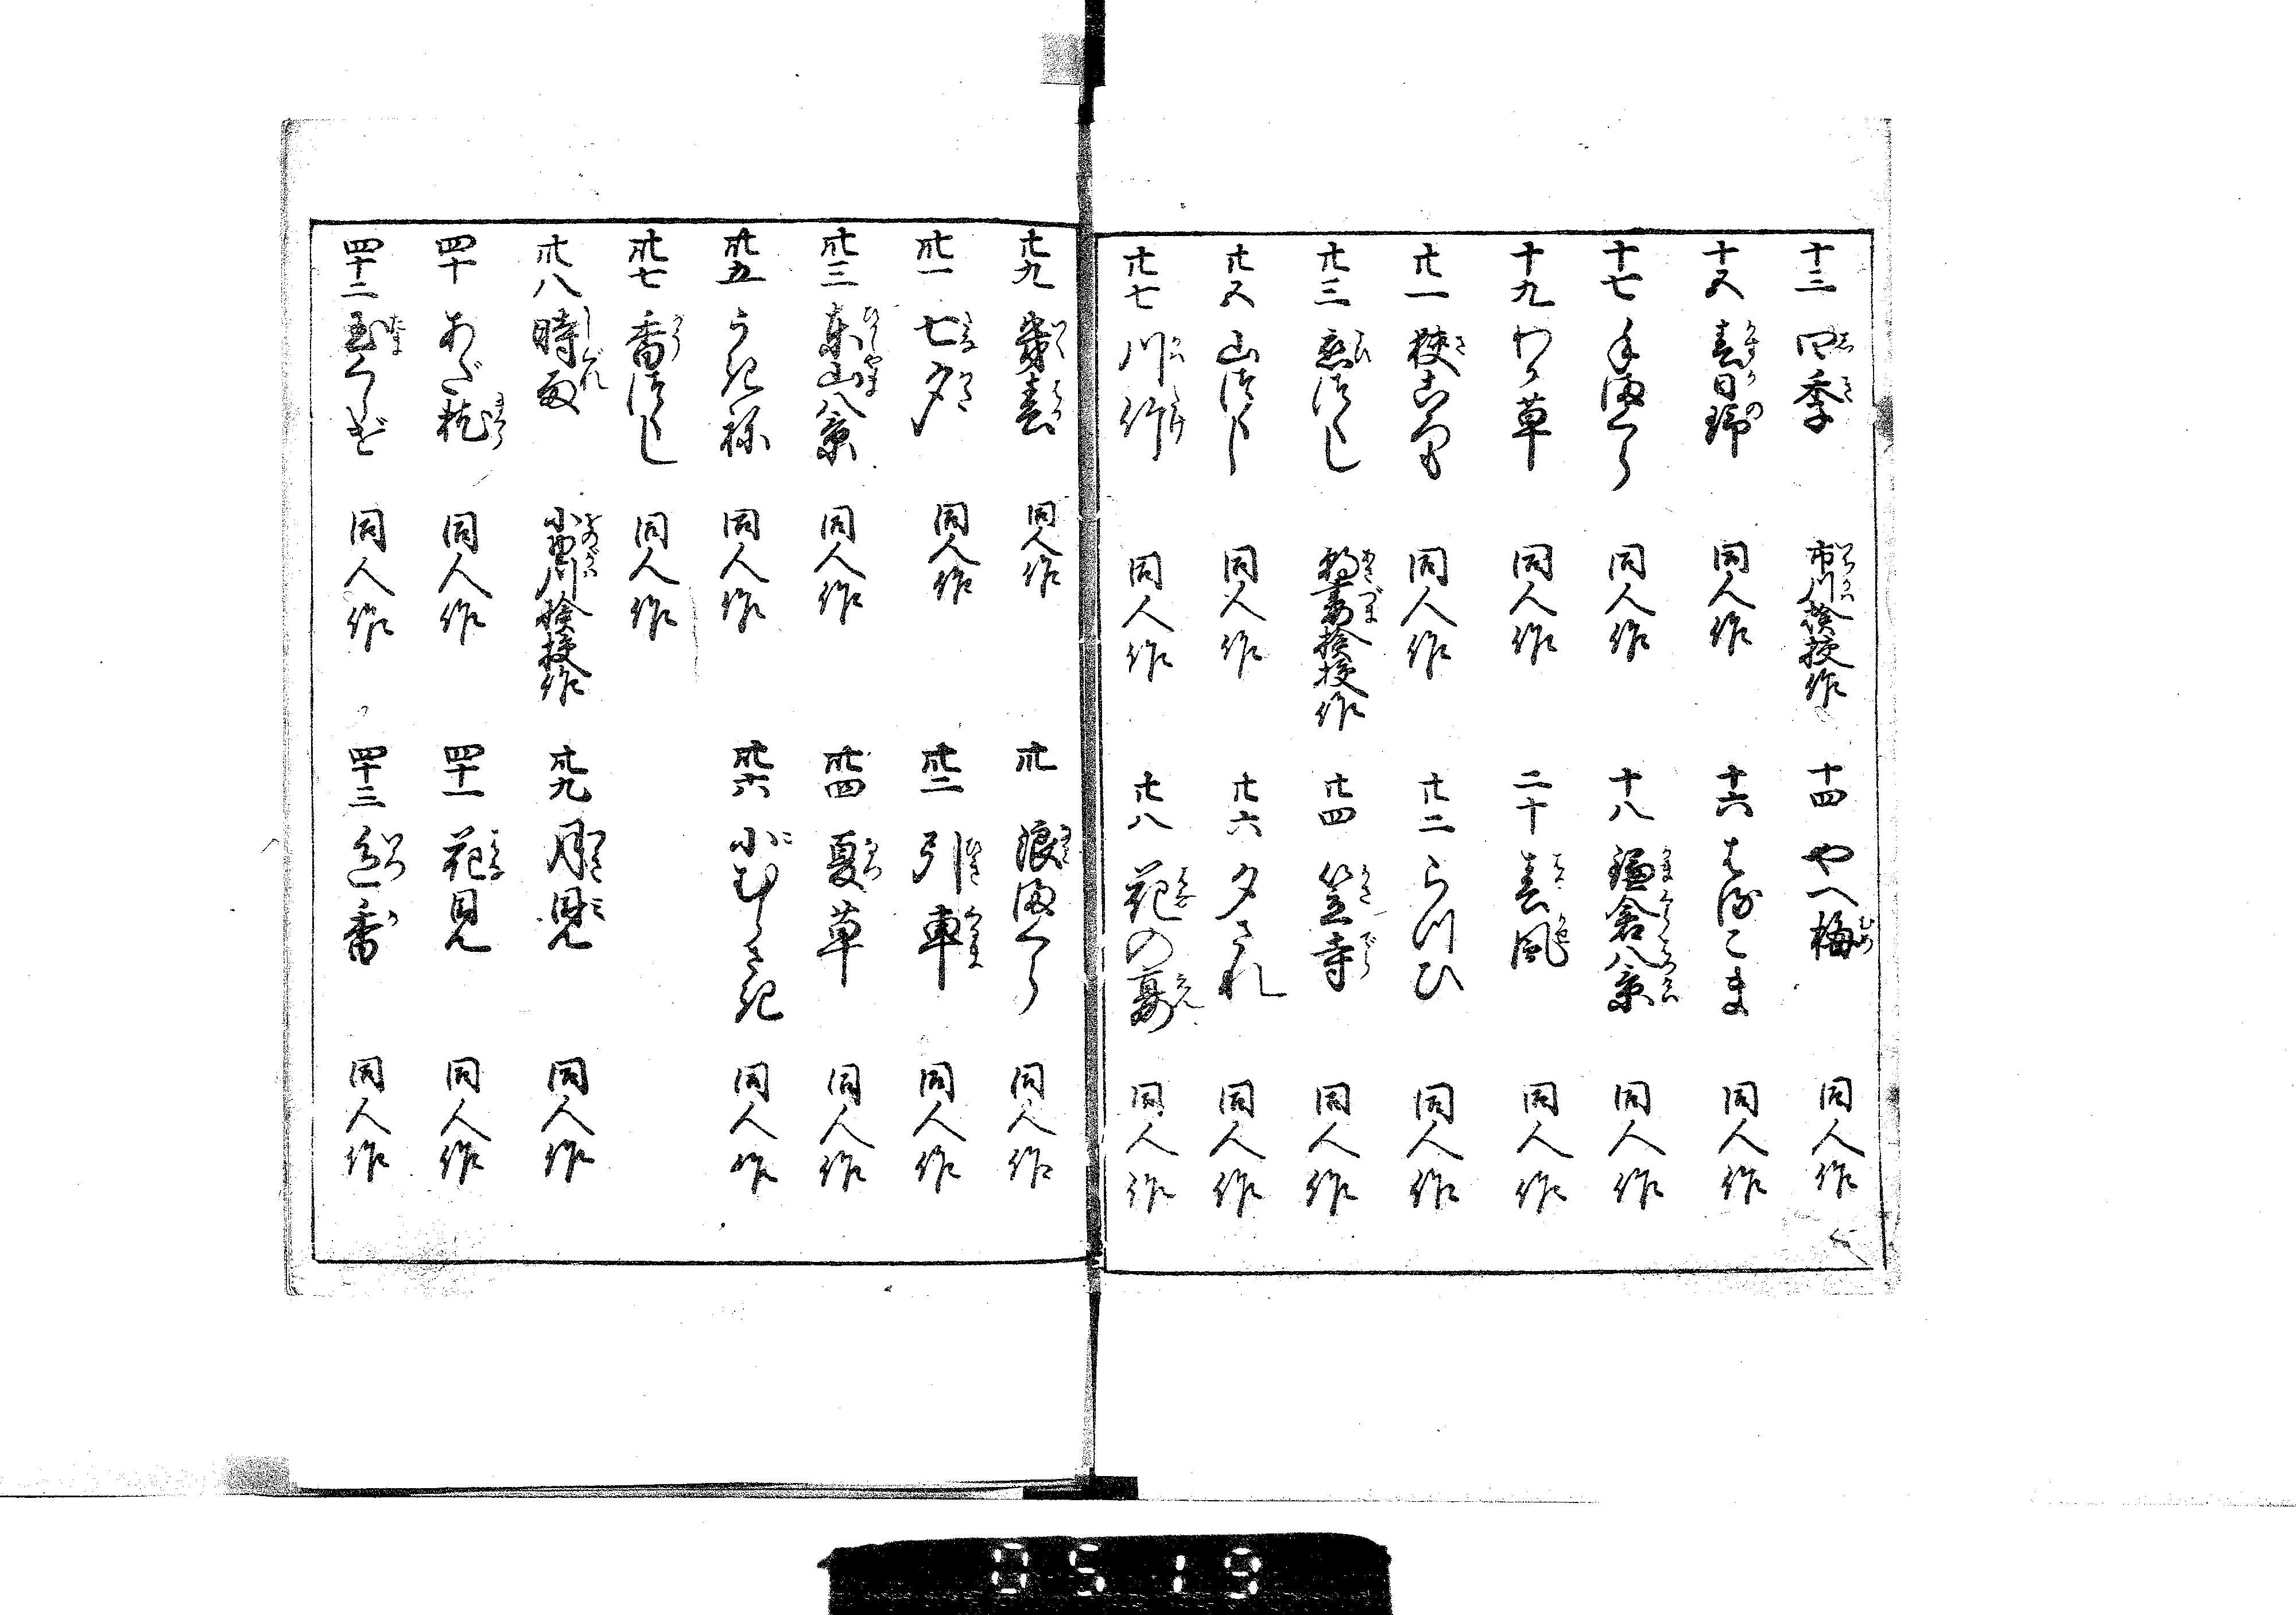 十三 四季 市川検校作 十四 やへ梅 同人作
十五 春日野 同人作 十六 はるこま 同人作
十七 手まくら 同人作 十八 鎌倉八景 同人作
十九 わか草 同人作 二十 春風 同人作
廿一 同人作 廿二 らつひ 同人作
廿三 恋づくし 朝妻検校作 廿四 笠寺 同人作
廿五 山づくし 同人作 廿六 夕ざれ 同人作
廿七 川竹 同人作 廿八 花の宴 同人作
廿九 幾春 同人作 卅 浪まくら 同人作
卅一 七夕 同人作 卅二 引車 同人作
卅三 東山八景 同人作 卅四 夏草 同人作
卅五 うきね 同人作 卅六 小むらさき 同人作
卅七 香づくし 同人作
卅八 時雨 小野川検校作 卅九 月見 同人作
四十 あだ枕 同人作 四十一 花見 同人作
四十二 玉くしげ 同人作 四十三 色香 同人作
0519